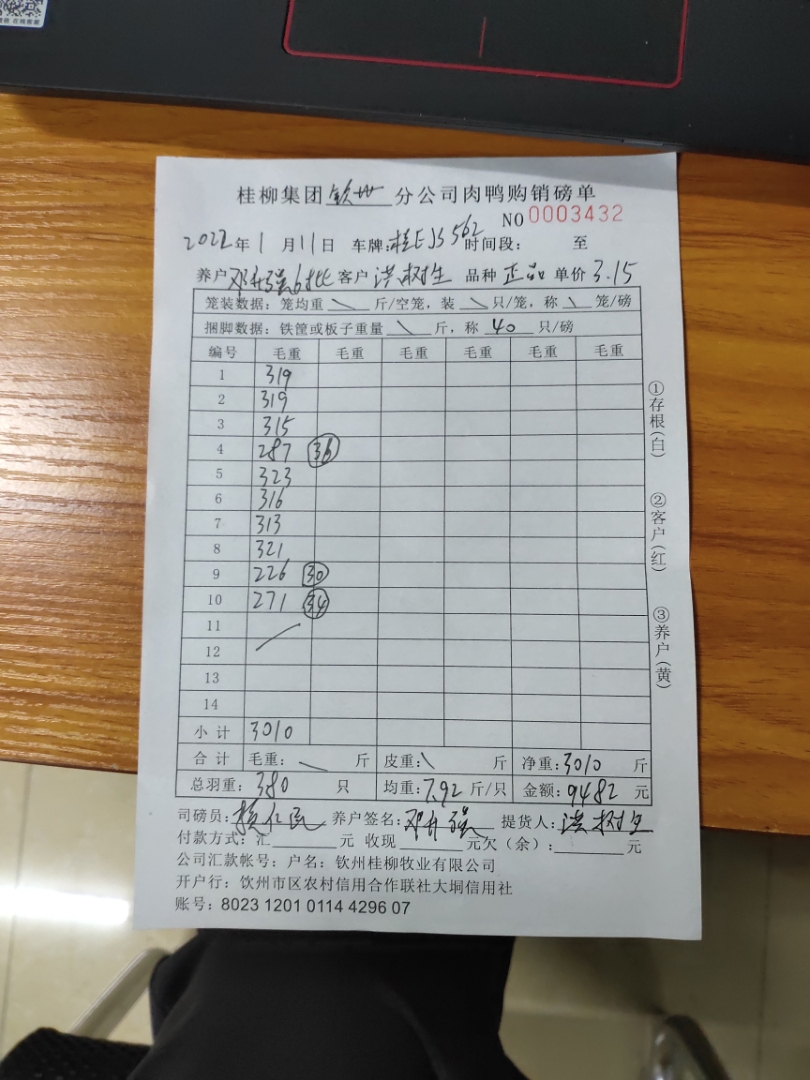 在线客服
桂柳集团钦州分公司肉鸭购销磅单
NO 0003432
2022年1月11日 车牌:桂EJS562 时间段: 至
养户邓升强6批 客户洪树生 品种正品 单价3.15
笼装数据: 笼均重 \ 斤/空笼, 装 \ 只/笼, 称 \ 笼/磅
捆脚数据: 铁筐或板子重量 \ 斤, 称 40 只/磅
编号 毛重 毛重 毛重 毛重 毛重 毛重
1 319
2 319
3 315
4 287 36
5 323
6 316
7 313
8 321
9 226 30
10 271 34
11
12
13
14
小计 3010
合计 毛重: \ 斤 皮重: \ 斤 净重: 3010 斤
总羽重: 380 只 均重: 7.92 斤/只 金额: 9482 元
司磅员: 养户签名: 邓升强 提货人: 洪树生
付款方式: 汇 元 收现 元欠(余): 元
公司汇款帐号: 户名: 钦州桂柳牧业有限公司
开户行: 钦州市区农村信用合作联社大垌信用社
账号: 8023 1201 0114 4296 07
①存根(白)
②客户(红)
③养户(黄)